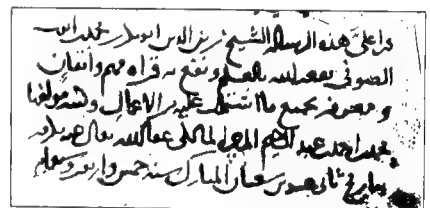 قرا علي هذه الرسالة الشيخ زين الدين ابو
الصوفي نفعه الله بالعلم ونفع به قراة فهم واتقان
ومعرفة بجميع ما اشتملت عليه من الاعمال وكتبه مولفها
محمد بن احمد بن عبد الرحيم المزي المالكي عفا الله تعالى عنه
بتاريخ ثاني شعبان المبارك سنة خمس واربعين وسبعمايه